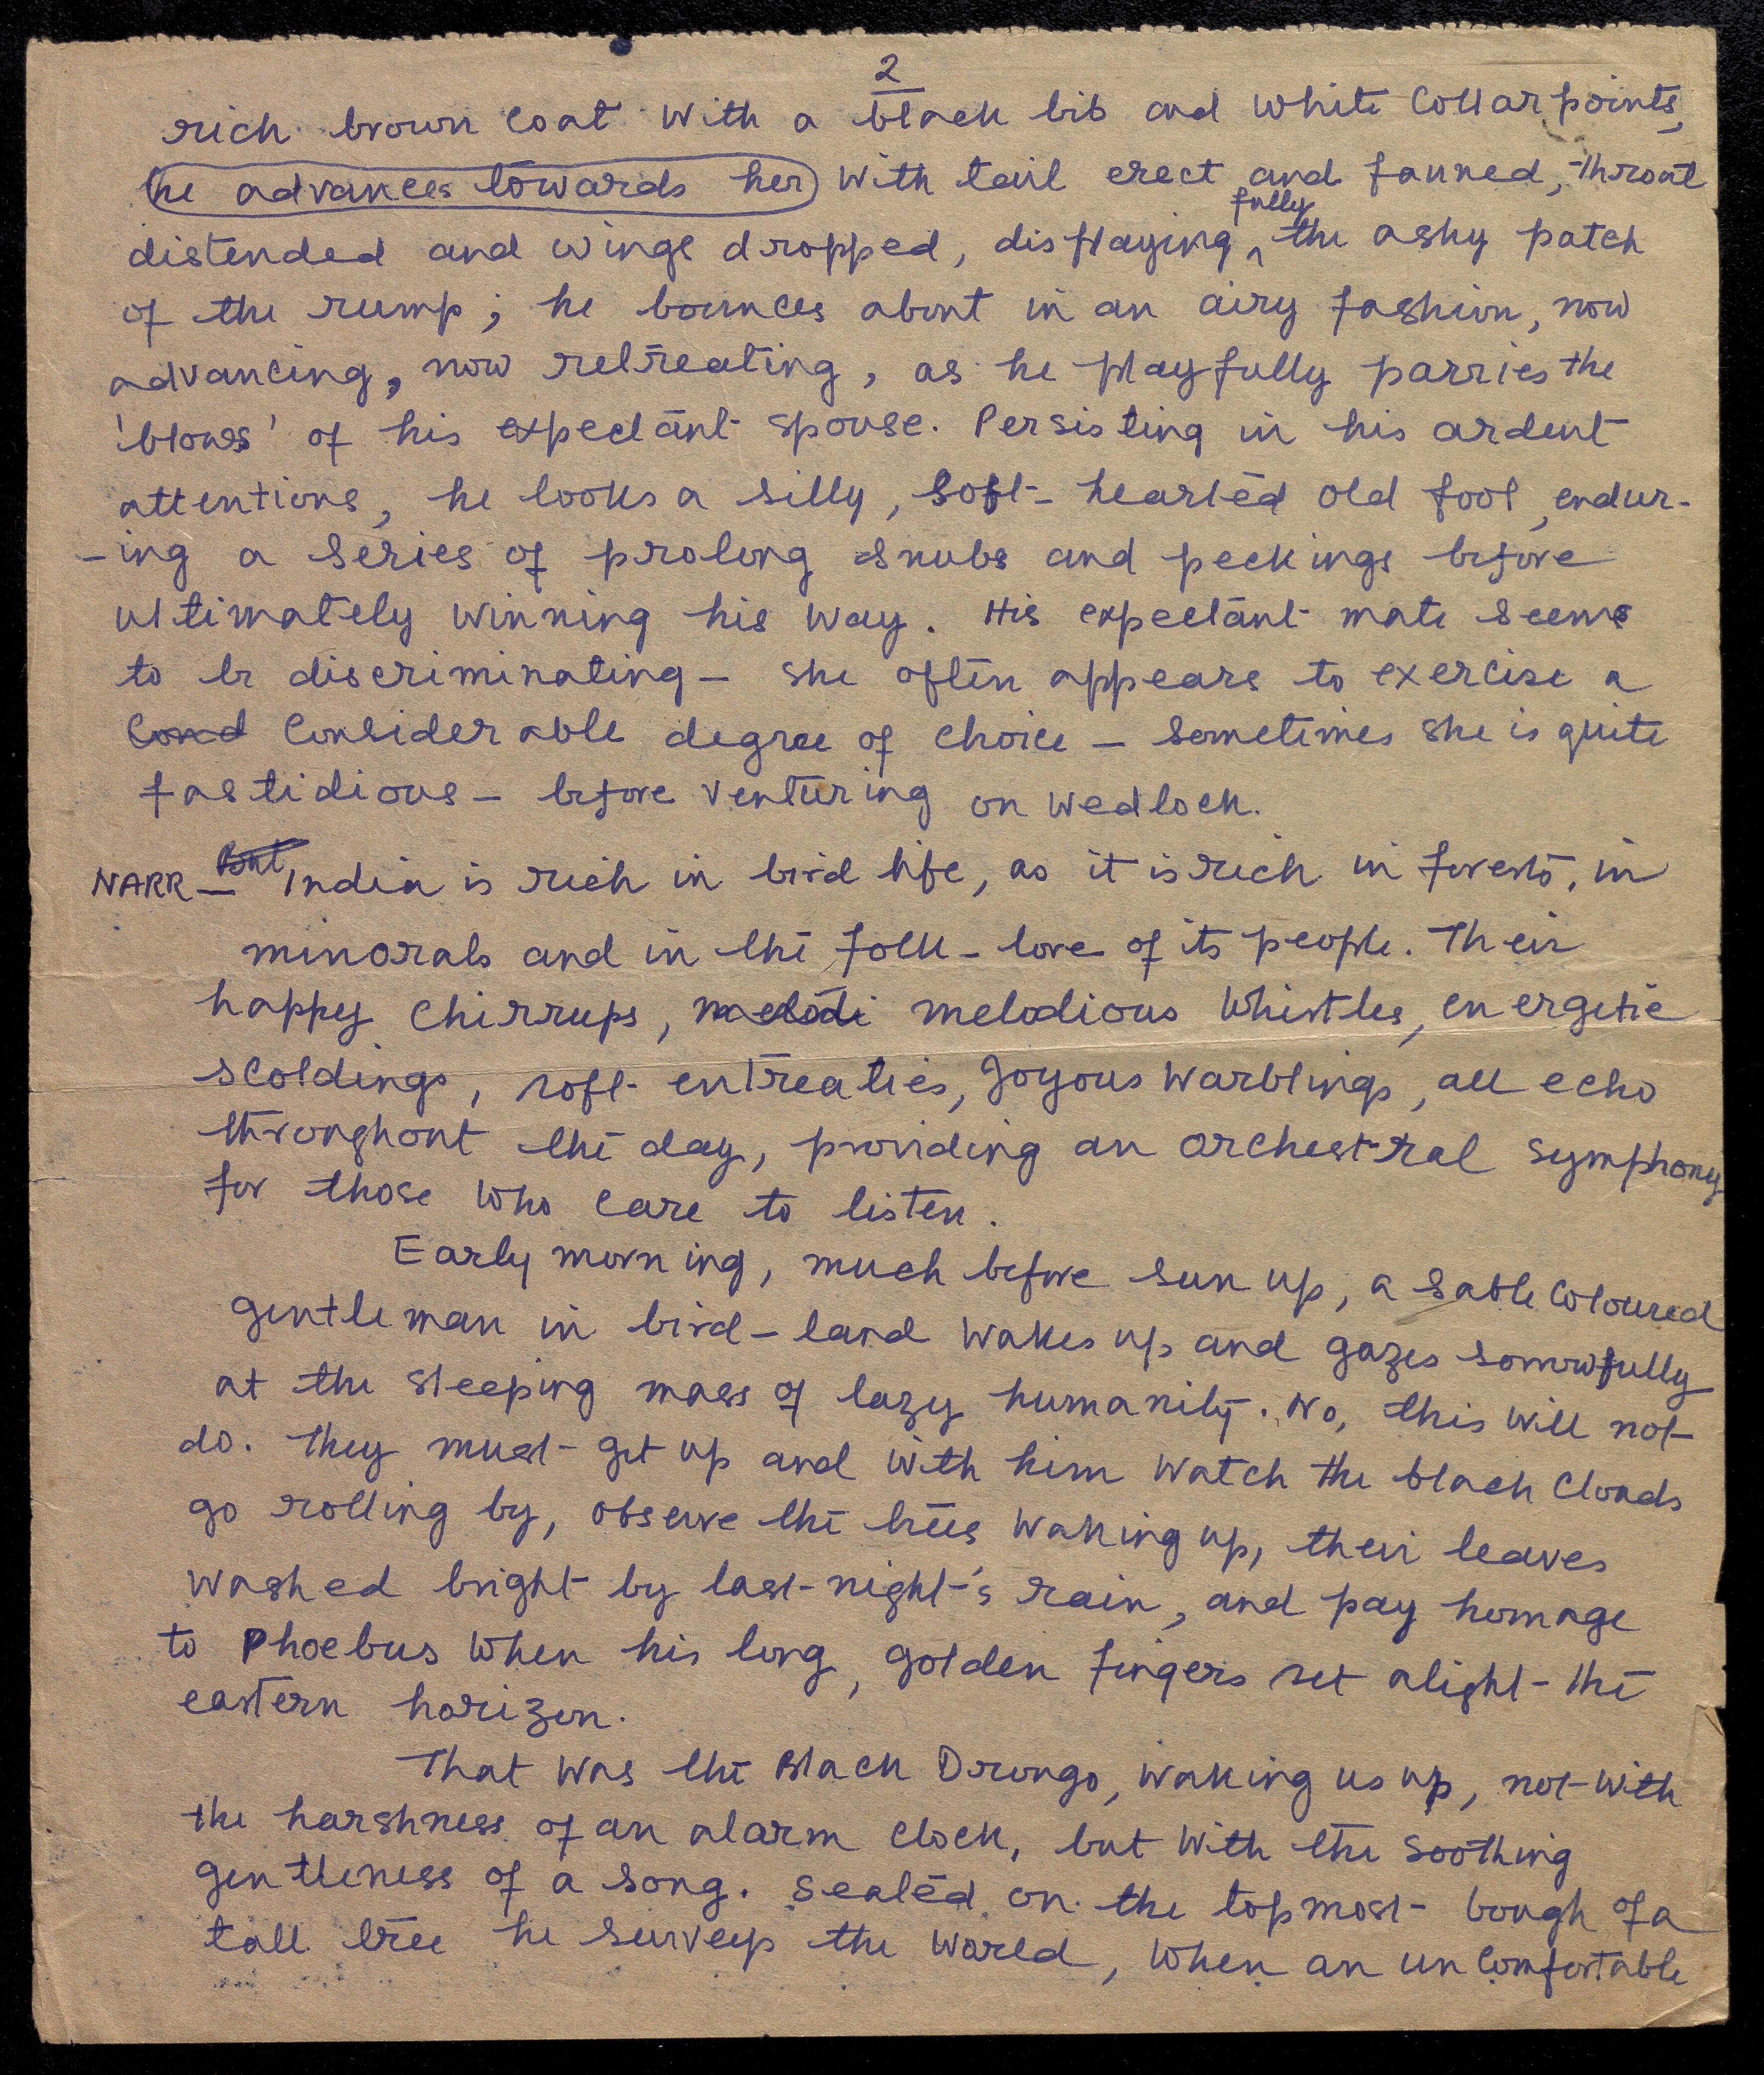 2
rich brown coat with a black bib and white collar points,
he advances towards her with tail erect and fanned, throat
fully
distended and wings dropped, displaying ^ the ashy patch
of the rump; he bounces about in an airy fashion, now
advancing, now retreating, as he playfully parries the
'blows' of his expectant spouse. Persisting in his ardent
attentions, he looks a silly, soft-hearted old fool, endur-
-ing a series of prolong snubs and peckings before
ultimately winning his way. His expectant mate seems
to be discriminating - she often appears to exercise a
Cond considerable degree of choice - sometimes she is quite
fastidious - before venturing on wedlock.
NARR - But India is rich in bird life, as it is rich in forests, in
minorals and in the folk-lore of its people. Their
happy chirrups, melodi melodious whistles, energetic
scoldings, soft entreaties, joyous warblings, all echo
throughout the day, providing an orchestral symphony
for those who care to listen.
Early morning, much before sun up, a sable coloured
gentleman in bird-land wakes up and gazes sorrowfully
at the sleeping mass of lazy humanity. No, this will not
do. They must get up and with him watch the black clouds
go rolling by, observe the trees waking up, their leaves
washed bright by last night's rain, and pay homage
to Phoebus when his long, golden fingers set alight the
eastern horizon.
That was the Black Drongo, waking us up, not with
the harshness of an alarm clock, but with the soothing
gentleness of a song. Seated on the topmost bough of a
tall tree he surveys the world, when an uncomfortable